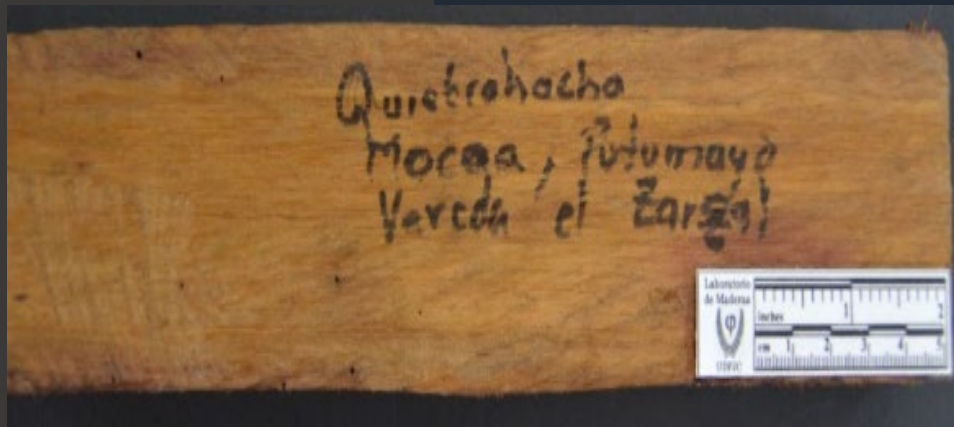 Quiebrahacho
Mocoa, Putumayo
Vereda el Zarzal
Laboratorio
de Maderas
UDFJC
inches 1 2
cm 1 2 3 4 5